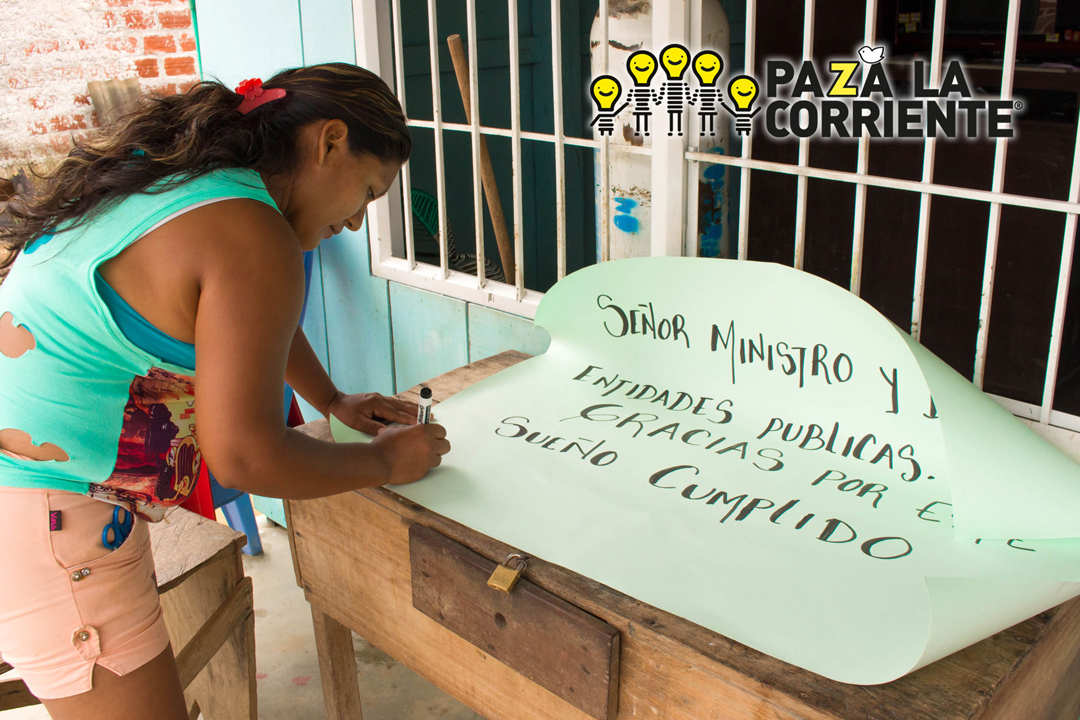 PAZA LA
CORRIENTE®
SEÑOR MINISTRO Y
ENTIDADES PUBLICAS.
GRACIAS POR
SUEÑO CUMPLIDO